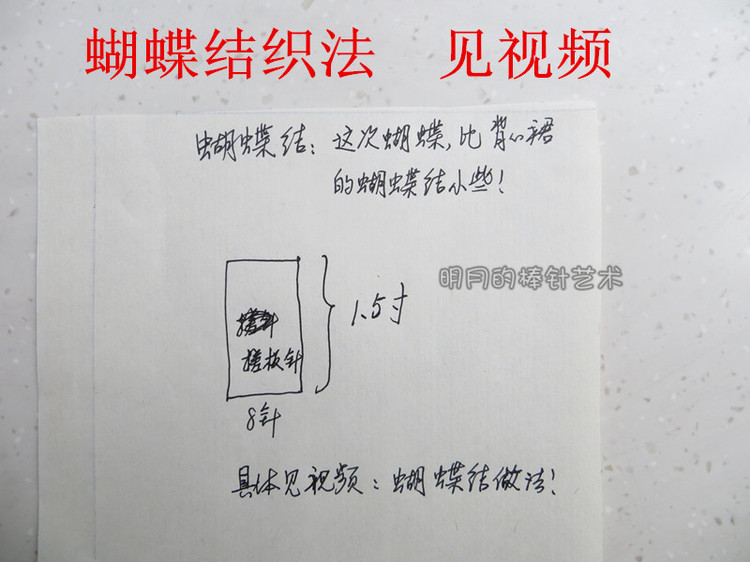 蝴蝶结织法 见视频
蝴蝶结：这次蝴蝶，比背心裙
的蝴蝶结小些！
明月的棒针艺术
1.5寸
搓板针
8针
具体见视频：蝴蝶结做法！